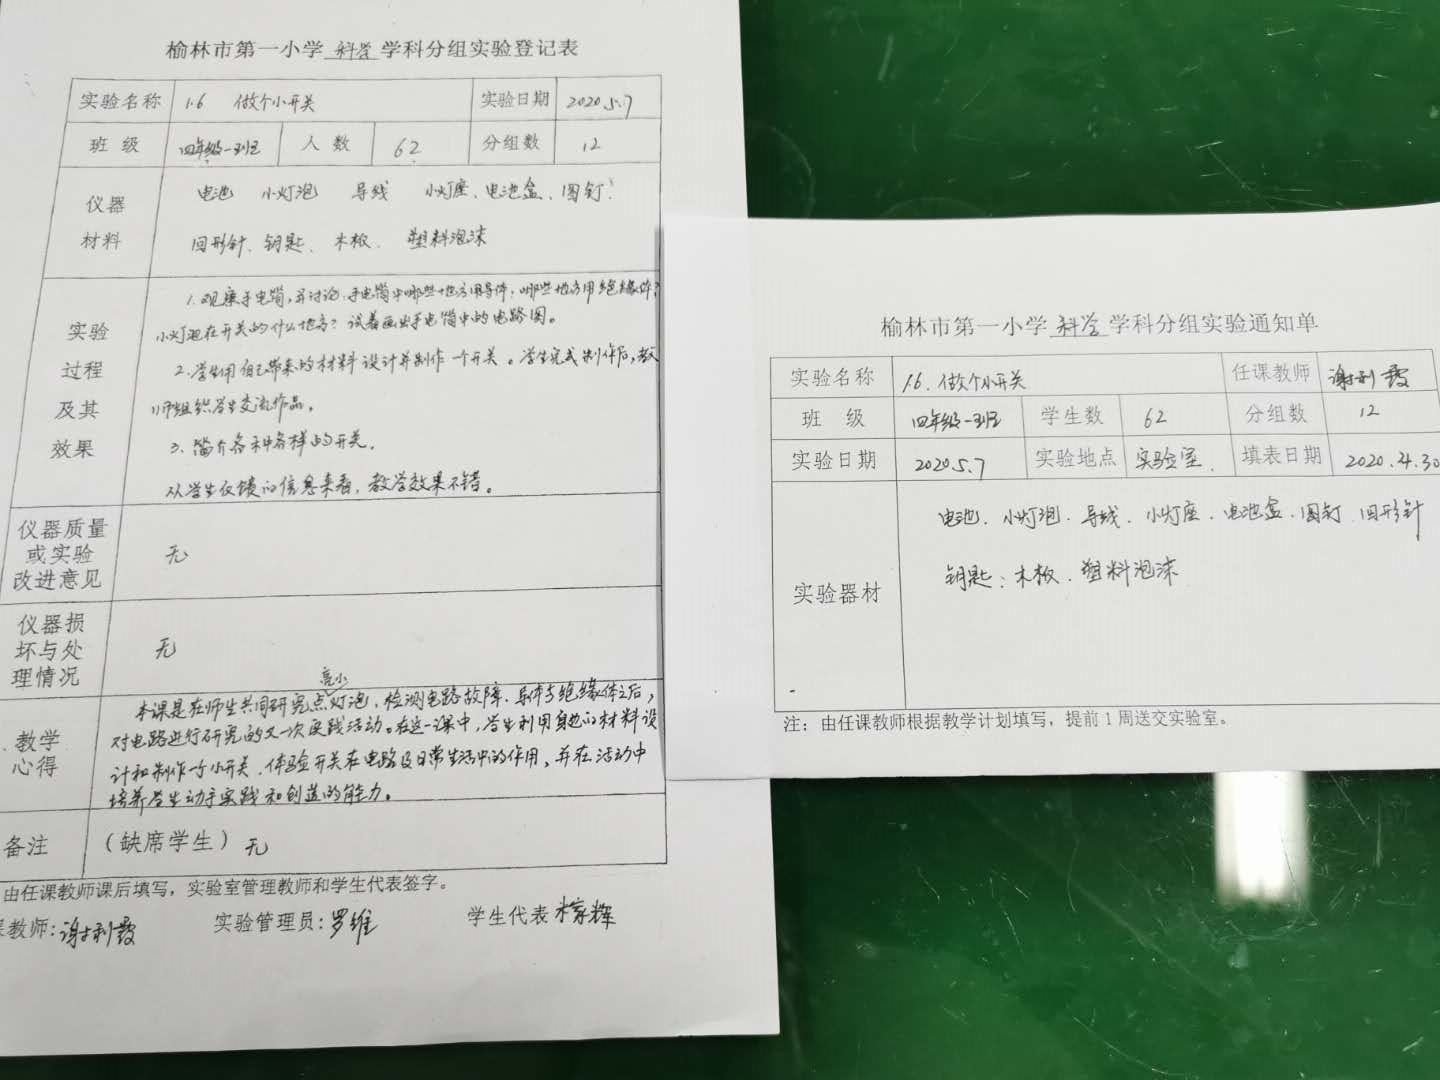 榆林市第一小学 科学 学科分组实验登记表
实验名称 1.6 做个小开关 实验日期 2020.5.7
班 级 四年级一班 人 数 62 分组数 12
仪器 电池 小灯泡 导线 小灯座、电池盒、图钉、
材料 回形针、钥匙、木板、塑料泡沫
1.观察手电筒,并讨论:手电筒中哪些地方用导体?哪些地方用绝缘体?
实验 小灯泡在开关的什么地方?试着画出手电筒中的电路图。
过程 2.学生用自己带来的材料设计并制作一个开关。学生完成制作后,教
及其 师组织学生交流作品。
效果 3.简介各种各样的开关。
从学生反馈的信息来看,教学效果不错。
仪器质量
或实验 无
改进意见
仪器损
坏与处 无
理情况
亮小
本课是在师生共同研究点灯泡、检测电路故障、导体与绝缘体之后,
教学 对电路进行研究的又一次实践活动。在这一课中,学生利用身边的材料设
心得 计和制作一个小开关,体验开关在电路及日常生活中的作用,并在活动中
培养学生动手实践和创造的能力。
备注 (缺席学生) 无
由任课教师课后填写,实验室管理教师和学生代表签字。
教师:谢利霞 实验管理员:罗维 学生代表
榆林市第一小学 科学 学科分组实验通知单
实验名称 1.6、做个小开关 任课教师 谢利霞
班 级 四年级一班 学生数 62 分组数 12
实验日期 2020.5.7 实验地点 实验室 填表日期 2020.4.30
电池、小灯泡、导线、小灯座、电池盒、图钉、回形针
钥匙、木板、塑料泡沫
实验器材
注:由任课教师根据教学计划填写,提前1周送交实验室。